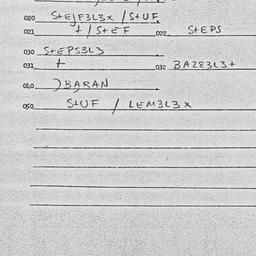 020 StEJF3L3x / StUF
021 t / StEF 022 StEPS
030 StEPS3L3
031 t 032 BAZ83L3t
040 JBARAN
050 StUF / LEM3L3x